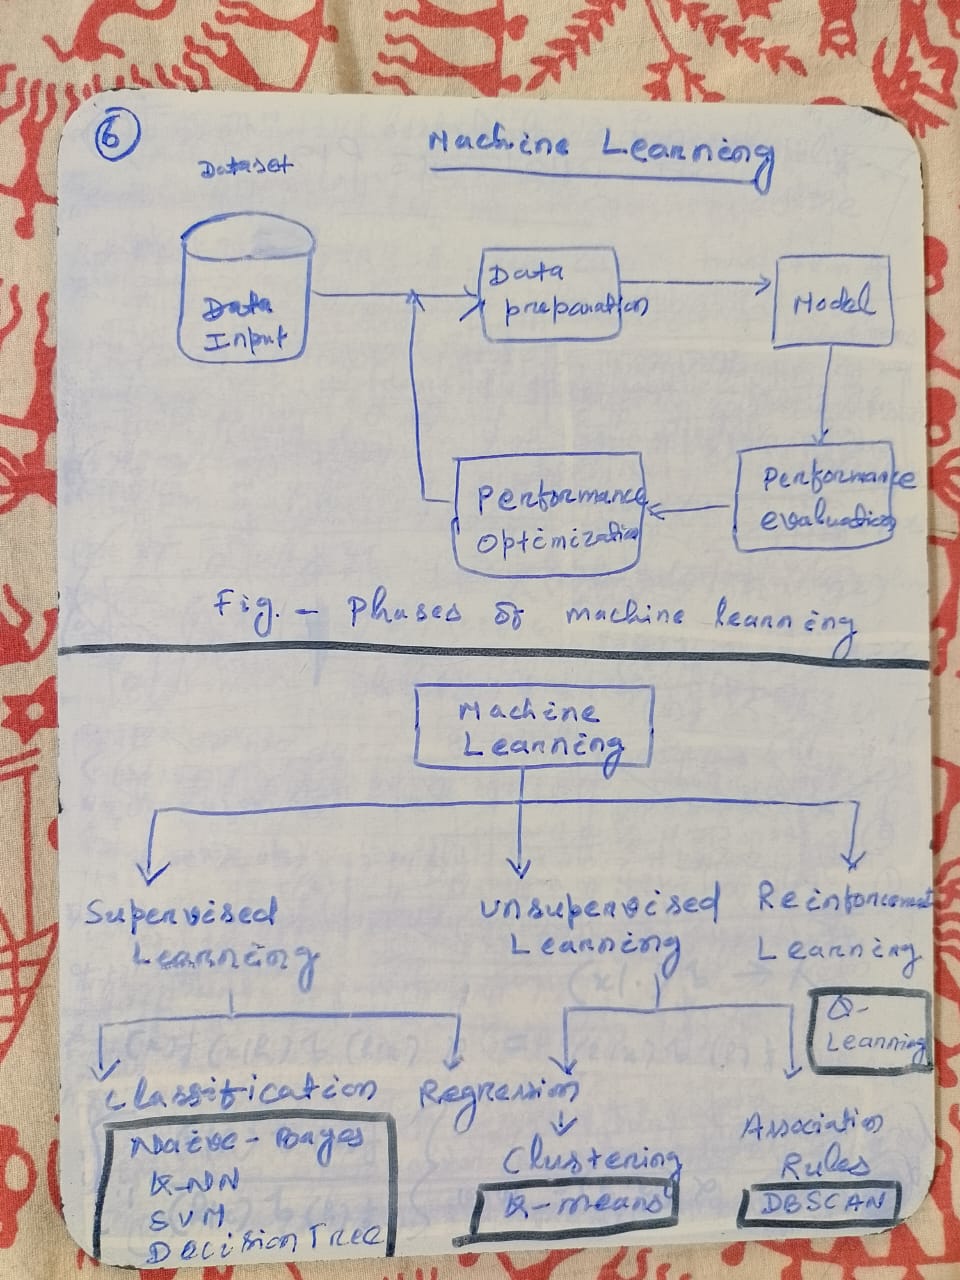 6
Machine Learning
Dataset
Data
Input
Data
preparation
Model
Performance
evaluation
Performance
Optimization
Fig. - Phases of machine learning
Machine
Learning
Supervised
Learning
Unsupervised
Learning
Reinforcement
Learning
Q-
Learning
Classification
Regression
Naive-Bayes
K-NN
SVM
Decision Tree
Clustering
K-means
Association
Rules
DBSCAN